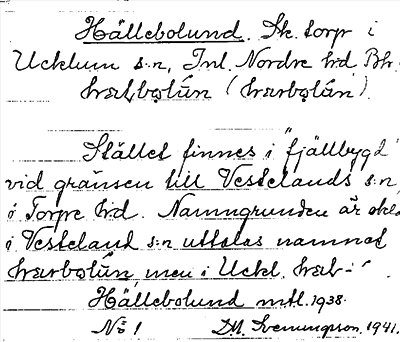 Hällebolund. Sk. torp i
Ucklum s:n, Inl. Nordre hd Bhl.
hvarbolún (hvarbolún).
Stället finnes i "fjällbygd"
vid gränsen till Vestelands s:n,
i Torpe hd. Namngrunden är
i Vesteland s:n uttalas namnet
hvarbolún, men i Uckl.
Hällebolund mtl. 1938.
No 1 D.M. Svenungsson. 1941.